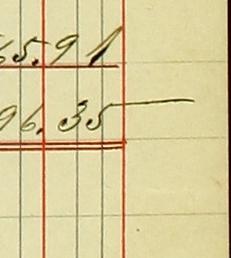 65.91
96.35